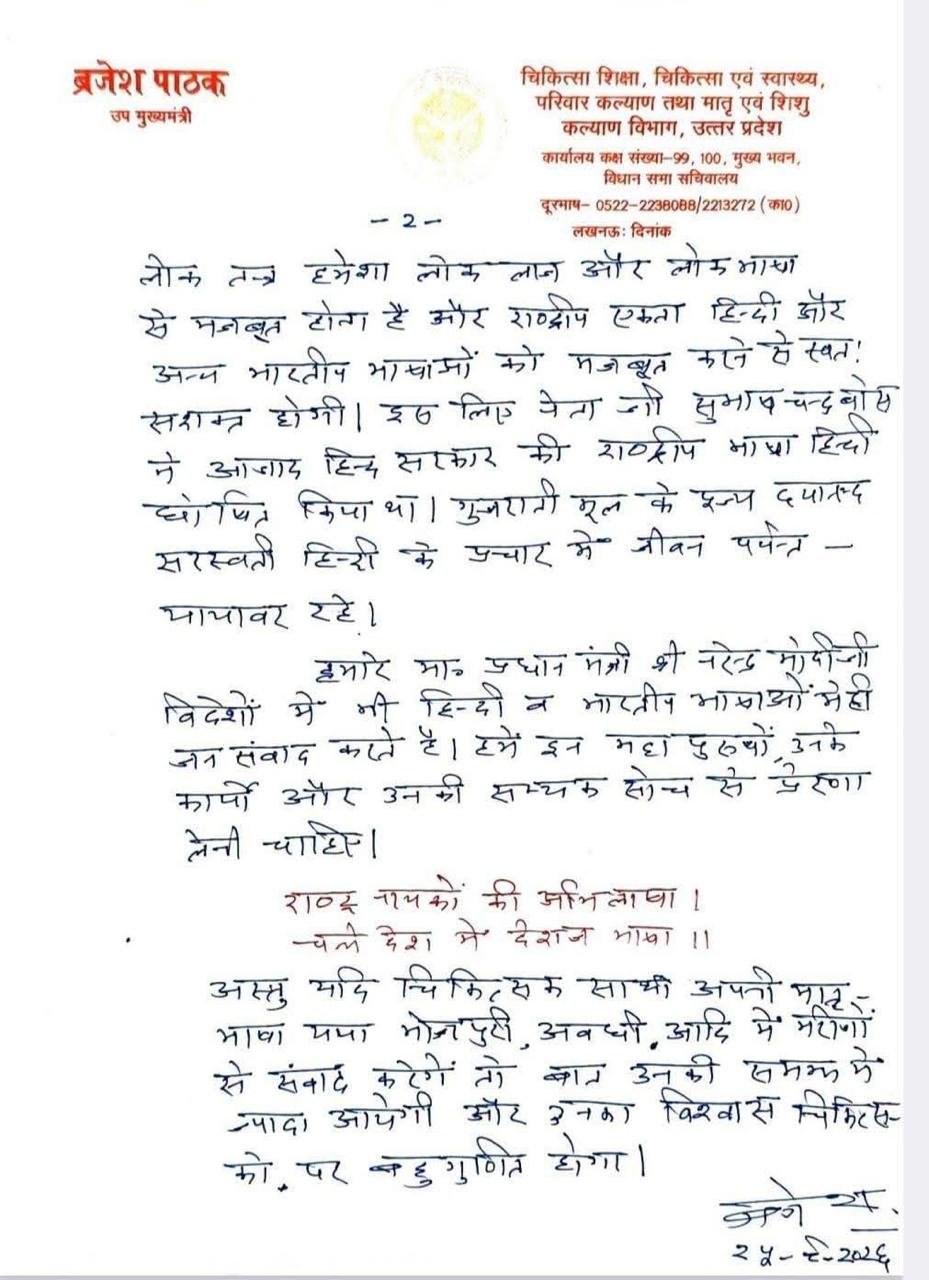 ब्रजेश पाठक
उप मुख्यमंत्री
चिकित्सा शिक्षा, चिकित्सा एवं स्वास्थ्य,
परिवार कल्याण तथा मातृ एवं शिशु
कल्याण विभाग, उत्तर प्रदेश
कार्यालय कक्ष संख्या-99, 100, मुख्य भवन,
विधान सभा सचिवालय
दूरभाष- 0522-2238088/2213272 (का0)
लखनऊ: दिनांक
- 2 -
लोक तन्त्र हमेशा लोक लाज और लोक भाषा
से मजबूत होता है और राष्ट्रीय एकता हिन्दी और
अन्य भारतीय भाषाओं को मजबूत करने से स्वत:
सशक्त होगी। इस लिए नेता जी सुभाष चन्द्र बोस
ने आजाद हिन्द सरकार की राष्ट्रीय भाषा हिन्दी
घोषित किया था। गुजराती मूल के पूज्य दयानन्द
सरस्वती हिन्दी के प्रचार में जीवन पर्यन्त -
यायावर रहे।
हमारे मा॰ प्रधान मंत्री श्री नरेन्द्र मोदी जी
विदेशों में भी हिन्दी व भारतीय भाषाओं मे ही
जन संवाद करते है। हमें इन महा पुरुषों, उनके
कार्यो और उनकी सम्यक सोच से प्रेरणा
लेनी चाहिए।
राष्ट्र नायकों की अभिलाषा।
चले देश में देशज भाषा॥
अस्तु यदि चिकित्सक साथी अपनी मातृ-
भाषा यथा भोजपुरी, अवधी, आदि में मरीजों
से संवाद करेगें तो बात उनकी समझ में
ज्यादा आयेगी और उनका विश्वास चिकित्स-
को, पर बहुगुणित होगा।
२५-२-२०२६